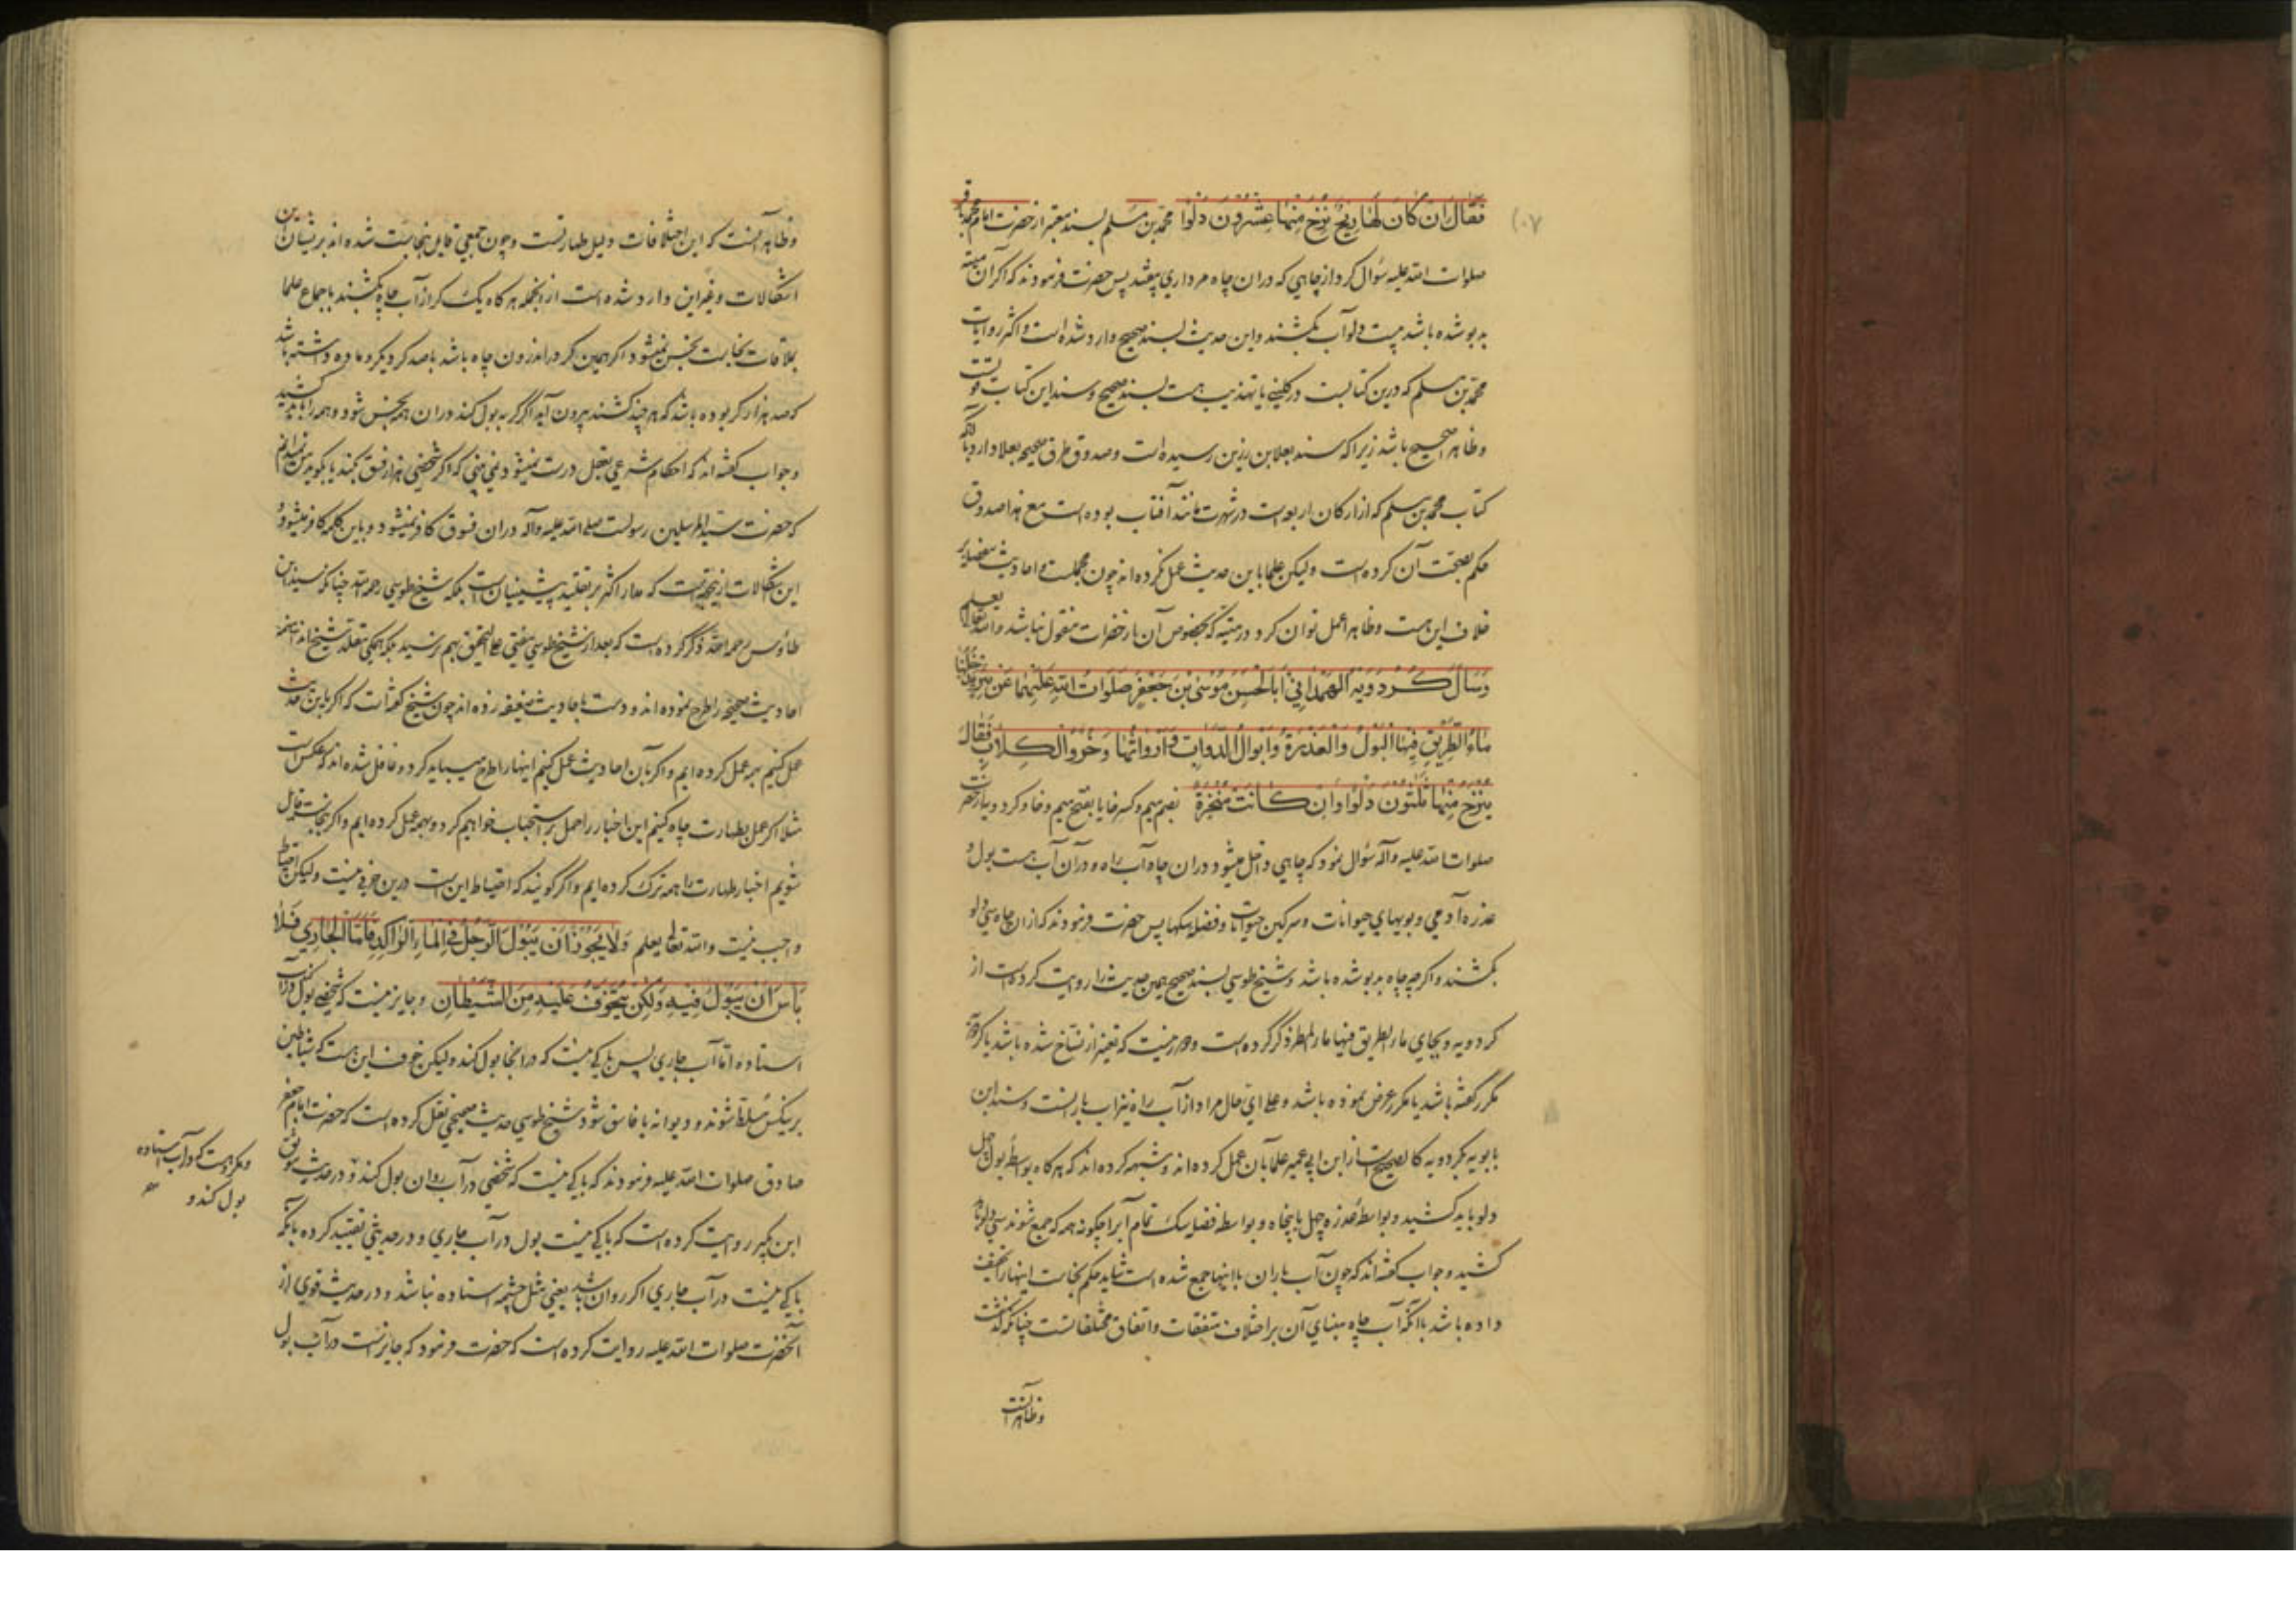 فَقَالَ اِنْ كَانَ لَهَا رِيحٌ نُزِحَ مِنْهَا عِشْرُونَ دَلْوًا محمد بن مسلم بسند معتبر از حضرت امام محمد باقر
صلوات الله عليه سؤال كرد از چاهي كه دران چاه مرداري بيفتد پس حضرت فرمودند كه اكر آن ميته
بدبو شده باشد بيست دلو آب بكشند واين حديث بسند صحيح وارد شده است واكثر روايات
محمد بن مسلم كه درين كتابست در كليني يا تهذيب هست بسند صحيح وسند اين كتاب قويست
وظاهرا صحيح باشد زيرا كه سند بعلا بن رزين رسيده است وصدوق طرق صحيحه بعلا دارد بآنكه
كتاب محمد بن مسلم كه از اركان اربعه است در شهرت مانند آفتاب بوده است مع هذا صدوق
حكم بصحت آن كرده است وليكن علما باين حديث عمل نكرده اند چون مجملست واحاديث
خلاف اين هست وظاهرا عمل توان كرد در ميته كه بخصوص آن از حضرات منقول نباشد والله تعالى يعلم
وَسَأَلَ كُرْدَوَيْهِ الهَمْدَانِيُّ اَبَا الْحَسَنِ مُوسَى بْنَ جَعْفَرٍ صَلَوَاتُ اللهِ عَلَيْهِمَا عَنْ بِئْرٍ يَدْخُلُهَا
مَاءُ الطَّرِيقِ فِيهَا الْبَوْلُ وَالْعَذِرَةُ وَاَبْوَالُ الدَّوَابِّ وَاَرْوَاثُهَا وَخُرْؤُ الْكِلَابِ فَقَالَ
يُنْزَحُ مِنْهَا ثَلٰثُونَ دَلْوًا وَاِنْ كَانَتْ مُبْخِرَةً بضم ميم وكسر خا يا بفتح ميم وخا وكردويه از حضرت
صلوات الله عليه وآله سؤال نمود كه چاهي داخل ميشود دران چاه آب راه ودرآن آب هست بول و
عذره آدمي وبولهاي حيوانات وسركين حيوانات وفضله سكها پس حضرت فرمودند كه ازان چاه سي دلو
بكشند واكرچه چاه بدبو شده باشد وشيخ طوسي بسند صحيح همين حديث را روايت كرده است از
كردويه وبجاي ماء الطريق فيها ماء المطر ذكر كرده است ودور نيست كه تغيير از نساخ شده باشد يا كردويه
مكرر كفته باشد يا مكرر عرض نموده باشد وعلى اي حال مراد از آب راه نيز آب بارانست وسند ابن
بابويه بكردويه كالصحيح است از ابن ابي عمير وعلما بآن عمل كرده اند وشبهه كرده اند كه هركاه بواسطه بول چهل
دلو بايد كشيد وبواسطه عذره چهل يا پنجاه وبواسطه فضله سك تمام آب را چكونه همه كه جمع شوند سي دلو بايد
كشيد وجواب كفته اند كه چون آب باران با اينها جمع شده است شايد حكم نجاست اينها را تخفيف
داده باشد با آنكه آب چاه مبناي آن بر اختلاف متفقات واتفاق مختلفاتست چنانكه كذشت
وظاهر آنست
وظاهر آنست كه اين اختلافات دليل طهارتست وچون جمعي قايل بنجاست شده اند بريشان اين
اشكالات وغير اين وارد شده است از آنجمله هركاه يك كر از آب چاه بكشند باجماع علما
بملاقات نجاست نجس نميشود اكر همين كر در اندرون چاه باشد با صد كر ديكر وماده داشته باشد
كه صد هزار كر بوده باشد كه هرچند كشند بيرون آيد اكر كربه بول كند دران همه نجس شود وهمه را بايد كشيد
وجواب كفته اند كه احكام شرعي بعقل درست نميشود نمي بيني كه اكر شخصي هزار فسق بكند يا بكويد من نميدانم
كه حضرت سيد المرسلين رسولست صلى الله عليه وآله دران فسوق كافر نميشود وباين كلمه كافر ميشود و
اين اشكالات ازينجهتست كه مدار اكثر بر تقليد پيشينيان است بلكه شيخ طوسي رحمه الله چنانكه سيد ابن
طاوس رحمه الله ذكر كرده است كه بعد از شيخ طوسي مفتي على التحقيق بهم نرسيد بلكه همكي مقلد شيخ اند
احاديث صحيحه را طرح نموده اند ودست باحاديث ضعيفه زده اند چون شيخ كفته است كه اكر باين حديث
عمل كنيم بهمه عمل كرده ايم واكر بآن احاديث عمل كنيم اينها را طرح ميبايد كرد وغافل شده اند كه عكس است
مثلا اكر عمل بطهارت چاه كنيم اين اخبار را حمل بر استحباب خواهيم كرد وبهمه عمل كرده ايم واكر بنجاست قايل
شويم اخبار طهارت را همه ترك كرده ايم واكر كويند كه احتياط اين است درين حرفي نيست وليكن احتياط
واجب نيست والله تعالى يعلم وَلَا يَجُوزُ اَنْ يَبُولَ الرَّجُلُ فِي الْمَاءِ الرَّاكِدِ فَاَمَّا الْجَارِي فَلَا
بَأْسَ اَنْ يَبُولَ فِيهِ وَلٰكِنْ يُتَخَوَّفُ عَلَيْهِ مِنَ الشَّيْطَانِ وجايز نيست كه شخصي بول كند در آب
استاده اما آب جاري پس باكي نيست كه در آنجا بول كند وليكن خوف اين هست كه شياطين
برينكس مسلط شوند وديوانه يا فاسق شود وشيخ طوسي حديث صحيحي نقل كرده است كه حضرت امام جعفر
صادق صلوات الله عليه فرمودند كه باكي نيست كه شخصي در آب روان بول كند و در حديث موثق
ابن بكير روايت كرده است كه باكي نيست بول در آب جاري ودر حديثي تقييد كرده بآنكه
باكي نيست در آب جاري اكر روان باشد يعني مثل چشمه استاده نباشد ودر حديث قوي از
آنحضرت صلوات الله عليه روايت كرده است كه حضرت فرمود كه جايز است در آب بول
ومكروهست كه در آب استاده
بول كند و